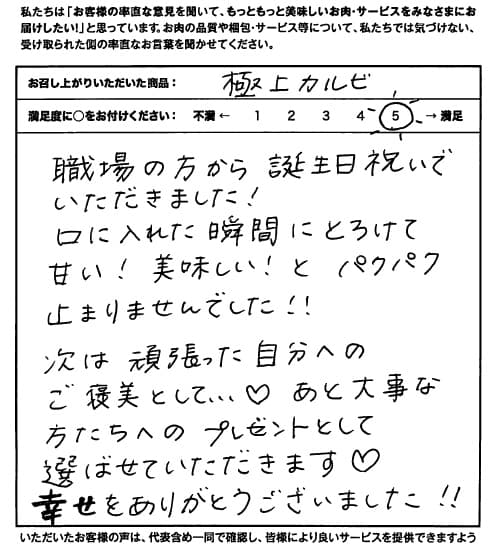 私たちは「お客様の率直な意見を聞いて、もっともっと美味しいお肉・サービスをみなさまにお
届けしたい!」と思っています。お肉の品質や梱包・サービス等について、私たちでは気づけない、
受け取られた側の率直なお言葉を聞かせてください。
お召し上がりいただいた商品： 極上カルビ
満足度に○をお付けください： 不満 ← 1 2 3 4 5 → 満足
職場の方から 誕生日祝いで
いただきました!
口に入れた瞬間にとろけて
甘い! 美味しい! と パクパク
止まりませんでした!!
次は 頑張った自分への
ご褒美として…♡ あと大事な
方たちへの プレゼントとして
選ばせていただきます♡
幸せをありがとうございました!!
いただいたお客様の声は、代表含め一同で確認し、皆様により良いサービスを提供できますよう